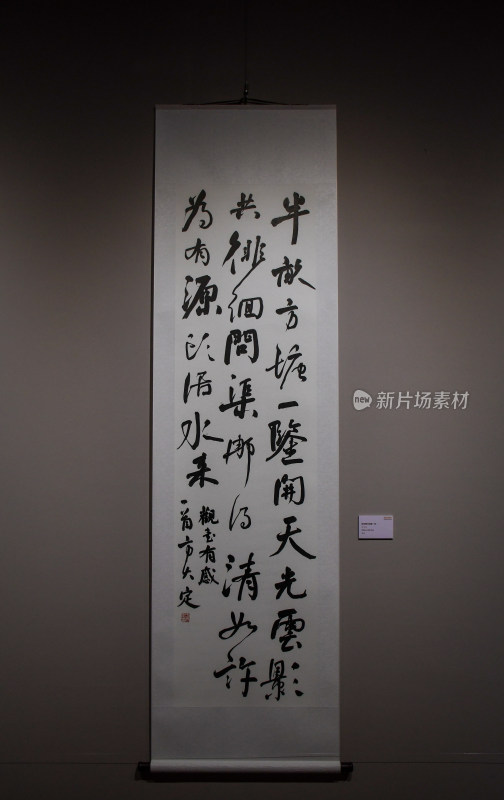 半畝方塘一鑒開天光雲影
共徘徊問渠那得清如許
為有源頭活水来
觀書有感
一首
new 新片场素材